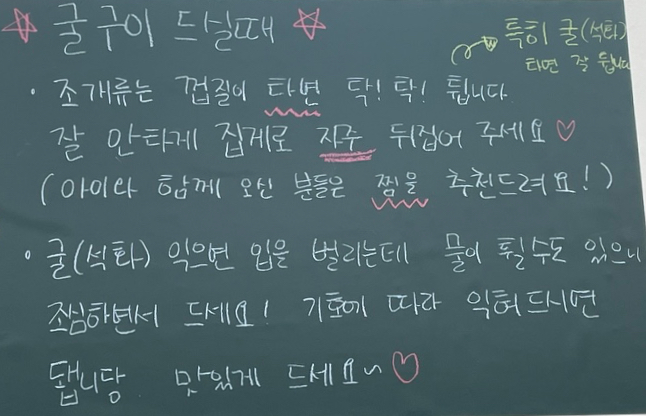 ☆ 굴구이 드실때 ☆
특히 굴(석화)
타면 잘 튑니다
· 조개류는 껍질이 타면 탁! 탁! 튑니다.
잘 안타게 집게로 자주 뒤집어 주세요♡
(아이와 함께 오신 분들은 찜을 추천드려요!)
· 굴(석화) 익으면 입을 벌리는데 물이 튈수도 있으니
조심하면서 드세요! 기호에 따라 익혀드시면
됩니당. 맛있게 드세요~♡